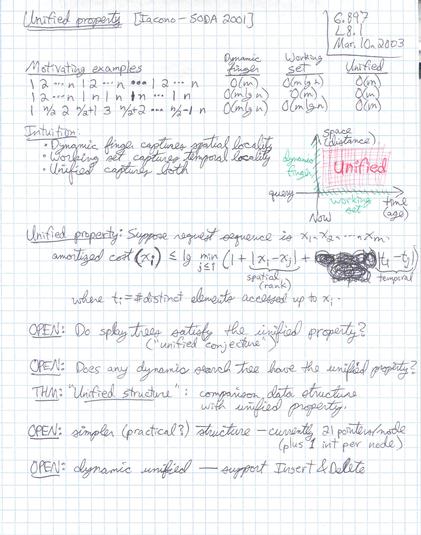 Unified property [Iacono - SODA 2001]
6.897
L8.1
Mar. 10, 2003
Motivating examples
Dynamic finger
Working set
Unified
1 2 ... n 1 2 ... n ... 1 2 ... n O(m) O(m lg n) O(m)
1 2 ... n 1 n 1 n ... 1 n O(m lg n) O(m) O(m)
1 n/2 2 n/2+1 3 n/2+2 ... n/2-1 n O(m lg n) O(m lg n) O(m)
Intuition:
• Dynamic finger captures spatial locality
• Working set captures temporal locality
• Unified captures both
space (distance)
dynamic finger
Unified
query
working set
time (age)
Now
Unified property: Suppose request sequence is x₁, x₂, ..., xₘ.
amortized cost (xᵢ) ≤ lg min j≤i (1 + |xᵢ-xⱼ| + |tᵢ-tⱼ|)
spatial (rank)
temporal
where tᵢ = #distinct elements accessed up to xᵢ.
OPEN: Do splay trees satisfy the unified property?
("unified conjecture")
OPEN: Does any dynamic search tree have the unified property?
THM: "Unified structure": comparison data structure
with unified property.
OPEN: simpler (practical?) structure - currently 21 pointers/node
(plus 1 int per node)
OPEN: dynamic unified — support Insert & Delete